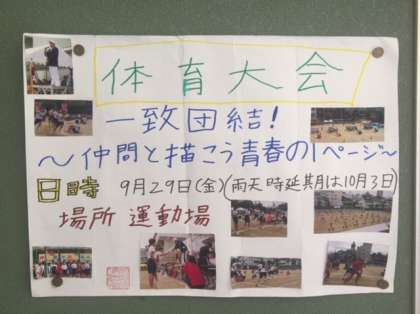 体育大会
一致団結!
～仲間と描こう青春の1ページ～
日時 9月29日(金)(雨天時延期は10月3日)
場所 運動場